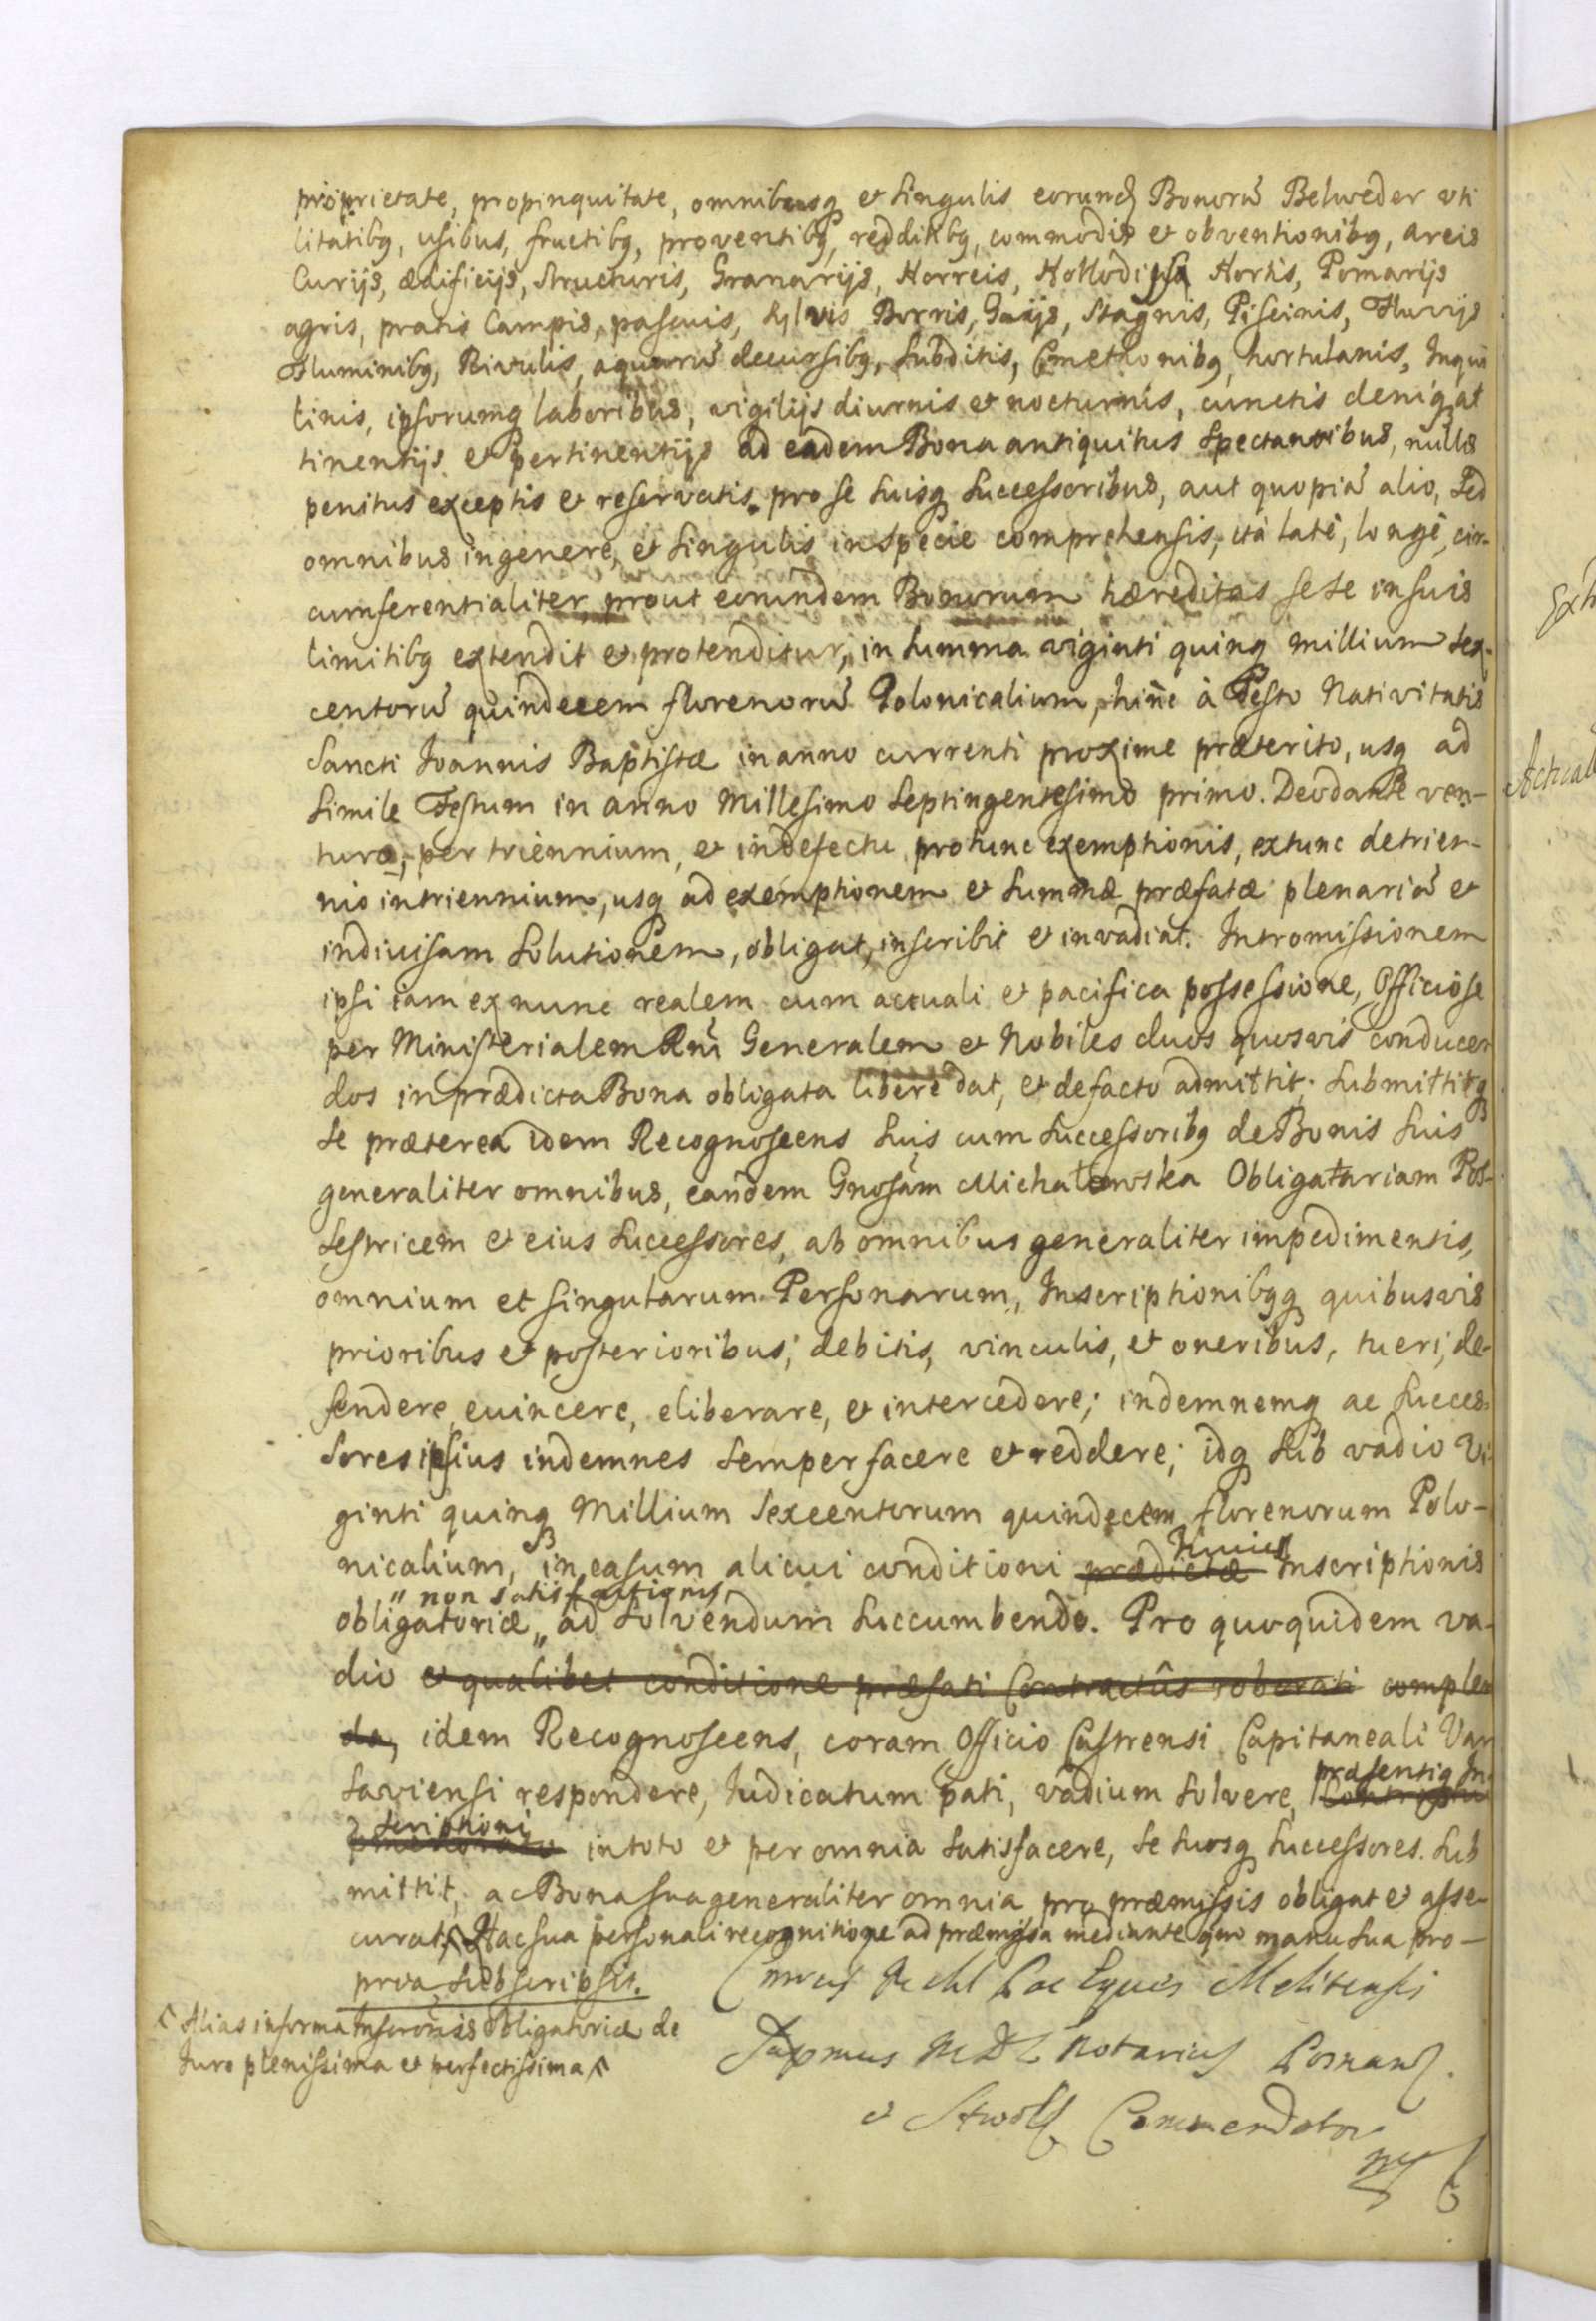 proprietate, propinquitate, omnibusq et singulis eorund Bonorũ Belweder vti
litatibq, usibus, fructibq, proventibq, redditibq, commodis et obventionibq, areis
Curijs, ædificijs, structuris, Granarijs, Horreis, Hortis, Pomarijs
agris, pratis Campis, pascuis, sylvis Borris, Gaijs, stagnis, Piscinis, Fluvijs
Fluminibq, Rivulis, aquarũ decursibq, subditis, Cmethonibq, hortulanis, Inqui
linis, ipsorumq laboribus, vigilijs diurnis et nocturnis, cunctis deniq at
tinentijs et pertinentijs ad eadem Bona antiquitus spectantibus, nullis
penitus exceptis et reservatis pro se suisq successoribus, aut quopiã alio, sed
omnibus ingenere, et singulis inspecie comprehensis, ità latè, longè, cir-
cumferentialiter prout eorundem Bonorum hæreditas sese insuis
limitibq extendit et protenditur, in summa viginti quinq millium sex-
centorũ quindecem florenorũ Polonicalium, hinc à Festo Nativitatis
Sancti Joannis Baptistæ inanno currenti proxime præterito, usq ad
simile Festum in anno Millesimo septingentesimo primo. Deo dante ven-
turo, per triennium, et indefectu protunc exemptionis, extunc detrien-
nio intriennium, usq ad exemptionem et summæ præfatæ plenariã et
indiuisam solutionem, obligat, inscribit et invadiat. Intromissionem
ipsi iam exnunc realem cum actuali et pacifica possessione, Officiose
per Ministerialem Rni Generalem et Nobiles duos quosvis conducen
dos in prædicta Bona obligata liberè dat, et defacto admittit; submittitq
se præterea idem Recognoscens suis cum successoribq de Bonis suis
generaliter omnibus, eandem Gnosam Michałowska Obligatariam Pos-
sestricem et eius successores, ab omnibus generaliter impedimentis,
omnium et singularum Personarum, Inscriptionibqq quibusvis
prioribus et posterioribus; debitis, vinculis, et oneribus, tueri, de-
fendere, euincere, eliberare, et intercedere; indemnemq ac succes-
sores ipsius indemnes semper facere et reddere; idq sub vadio Vi-
ginti quinq Millium sexcentorum quindecem florenorum Polo-
nicalium, in casum alicui conditioni prædictæ huius Inscriptionis
obligatoriæ „ non satisfactionis „ ad solvendum succumbendo. Pro quoquidem va-
dio et qualibet conditione præfati Contractûs roborati complen
da, idem Recognoscens, coram Officio Castrensi Capitaneali Var
saviensi respondere, Iudicatum pati, vadium solvere, præsentiq In-
scriptioni intoto et per omnia satisfacere, se suosq successores sub
mittit, ac Bona sua generaliter omnia pro præmissis obligat et asse-
curat, Hac sua personali recognitione ad præmissa mediante quo manu sua pro-
pria subscripsit.
Alias in forma Inscronis Obligatoriæ de
Iure plenissima et perfectissima
Eques Melitensis
Supmus MDL Notarius Posnan
et Stwol Commendator